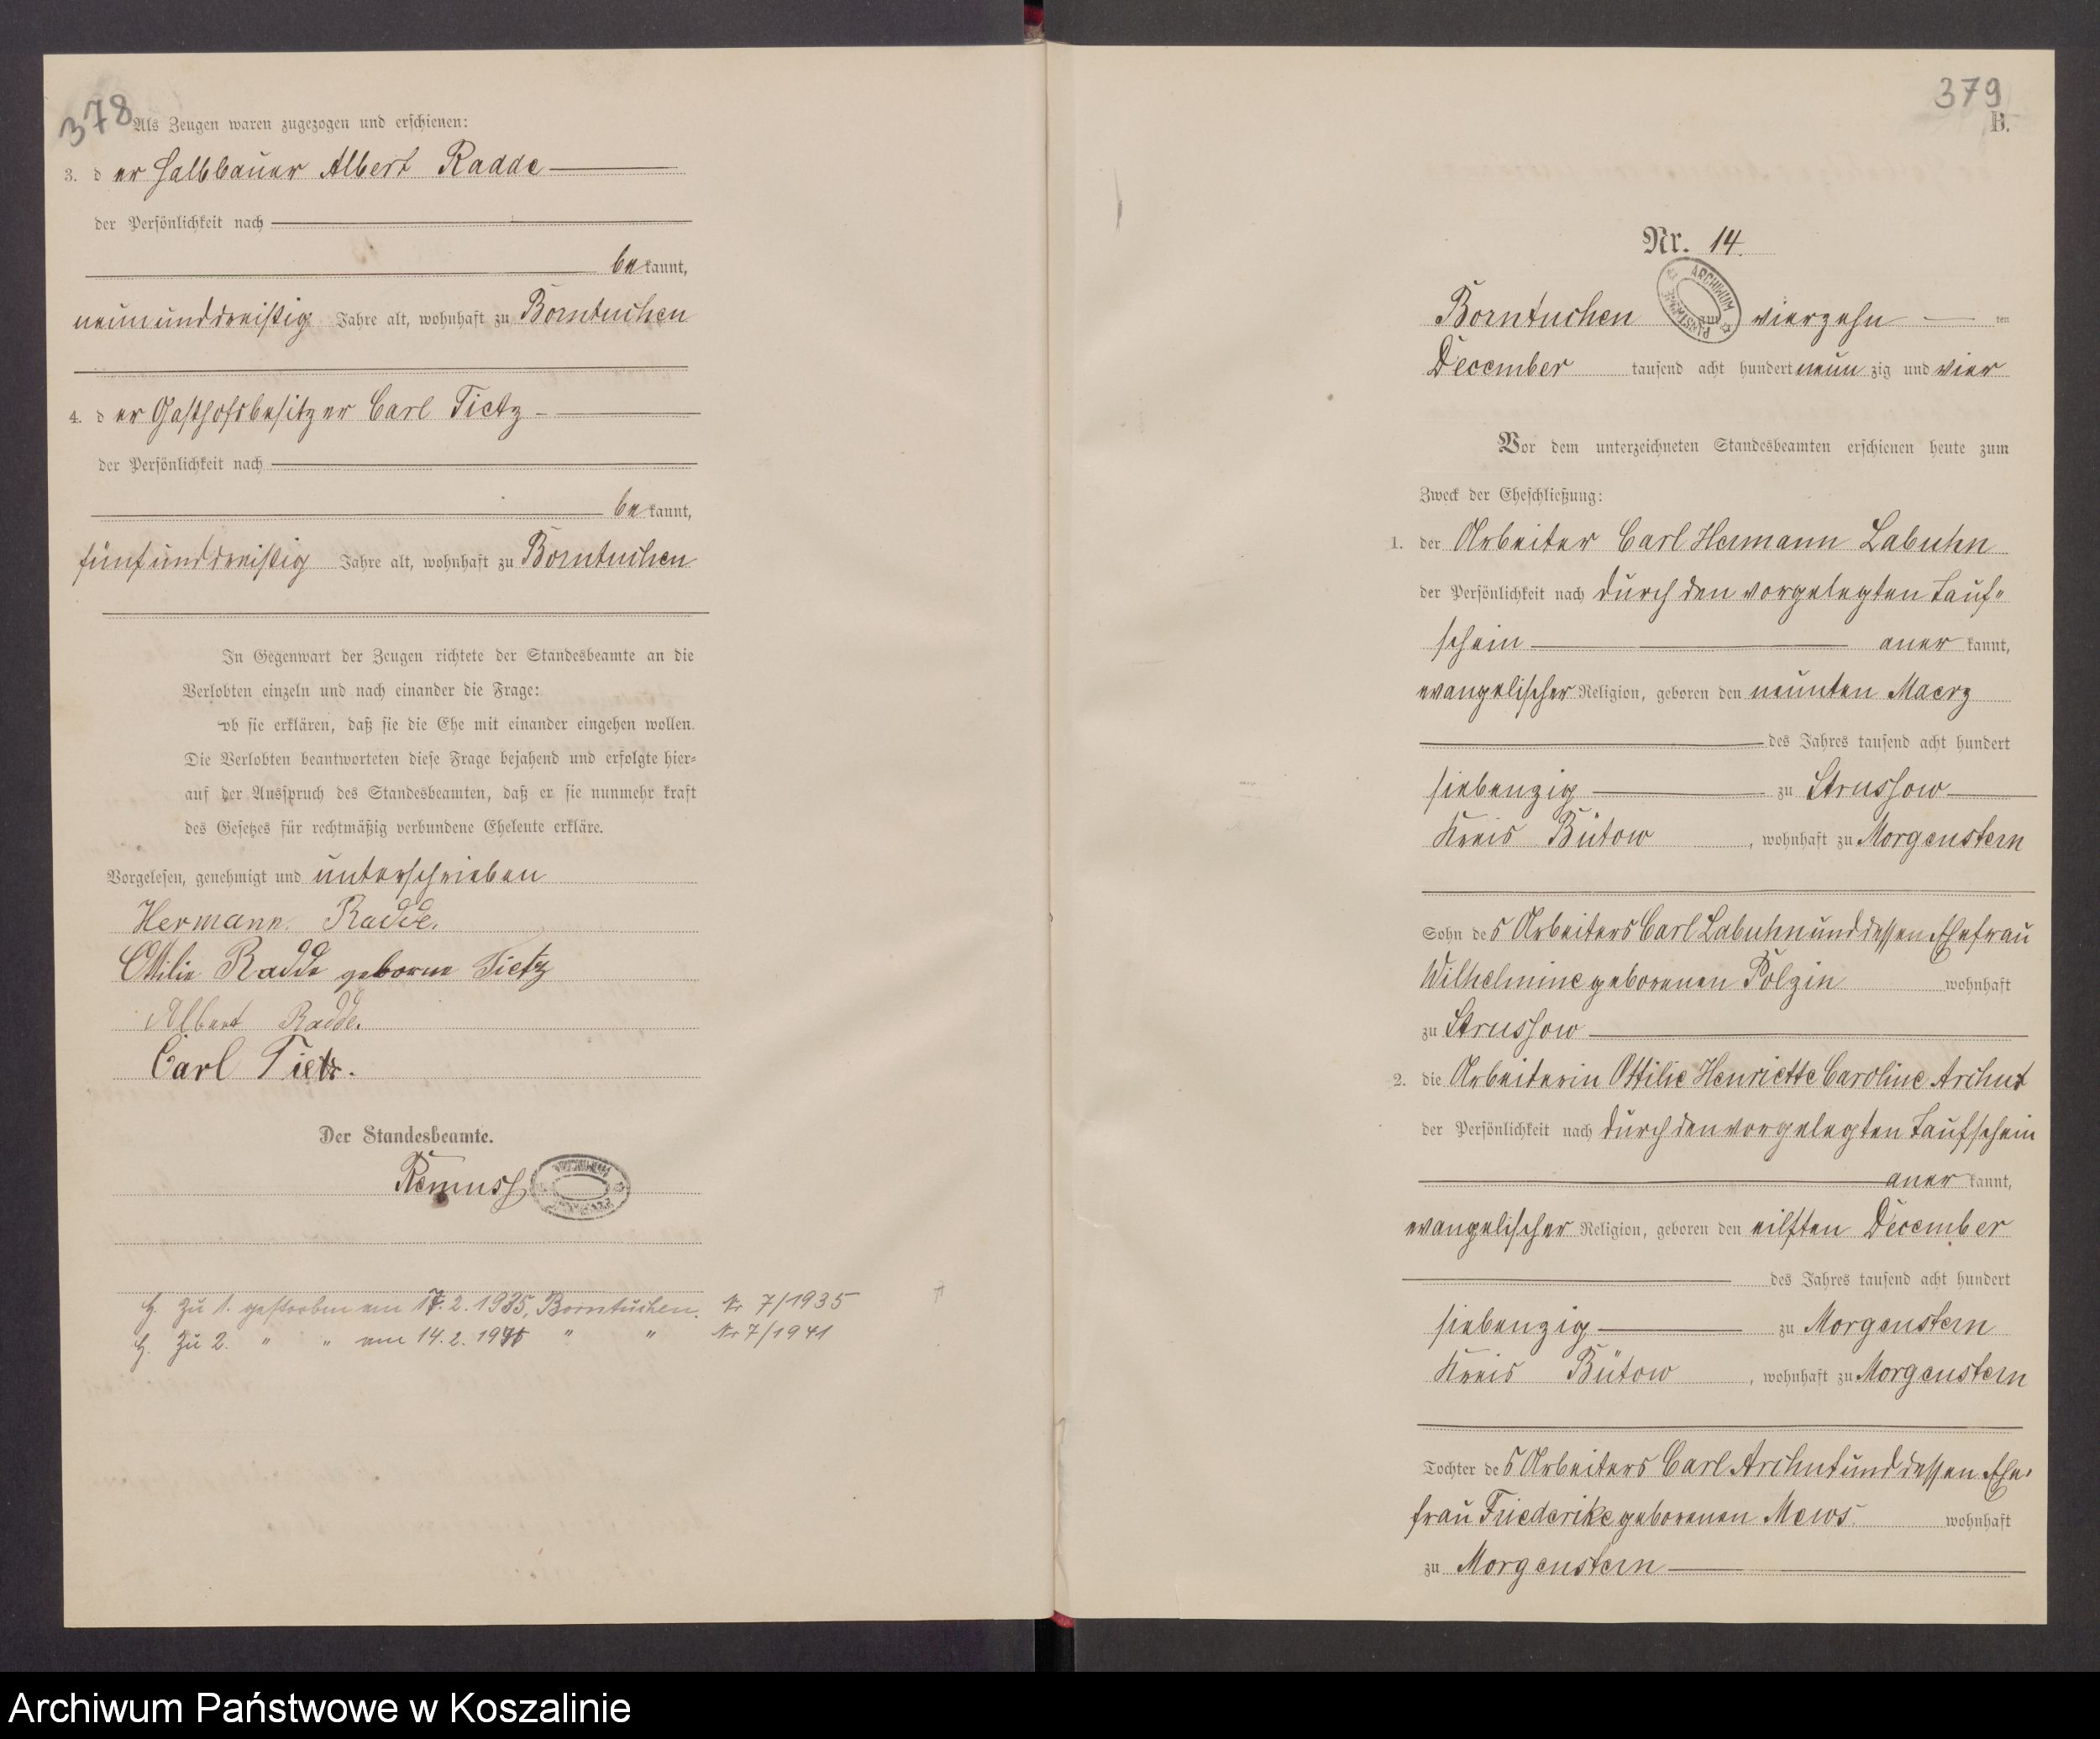 378
Als Zeugen waren zugezogen und erschienen:
3. der Halbbauer Albert Radde
der Persönlichkeit nach
bekannt,
neununddreißig Jahre alt, wohnhaft zu Borntuchen
4. der Gasthofsbesitzer Carl Tietz
der Persönlichkeit nach
bekannt,
fünfunddreißig Jahre alt, wohnhaft zu Borntuchen
In Gegenwart der Zeugen richtete der Standesbeamte an die
Verlobten einzeln und nach einander die Frage:
ob sie erklären, daß sie die Ehe mit einander eingehen wollen.
Die Verlobten beantworteten diese Frage bejahend und erfolgte hier=
auf der Ausspruch des Standesbeamten, daß er sie nunmehr kraft
des Gesetzes für rechtmäßig verbundene Eheleute erkläre.
Vorgelesen, genehmigt und unterschrieben
Hermann. Radde.
Ottilie Radde geborne Tietz
Albert Radde.
Carl Tietz.
Der Standesbeamte.
Remuss
H. zu 1. gestorben am 17.2.1935, Borntuchen. Nr 7/1935
H. zu 2. " " am 14.2. " " Nr 7/1941
379
B.
Nr. 14.
ARCHIWUM PAŃSTWOWE
Borntuchen am vierzehn ten
December tausend acht hundert neun zig und vier
Vor dem unterzeichneten Standesbeamten erschienen heute zum
Zweck der Eheschließung:
1. der Arbeiter Carl Hermann Labuhn
der Persönlichkeit nach durch den vorgelegten Tauf"
schein anerkannt,
evangelischer Religion, geboren den neunten Maerz
des Jahres tausend acht hundert
siebenzig zu Strussow
Kreis Bütow, wohnhaft zu Morgenstern
Sohn des Arbeiters Carl Labuhn und dessen Ehefrau
Wilhelmine geborenen Polzin wohnhaft
zu Strussow
2. die Arbeiterin Ottilie Henriette Caroline Archut
der Persönlichkeit nach durch den vorgelegten Taufschein
anerkannt,
evangelischer Religion, geboren den eilften December
des Jahres tausend acht hundert
siebenzig zu Morgenstern
Kreis Bütow, wohnhaft zu Morgenstern
Tochter des Arbeiters Carl Archut und dessen Ehe-
frau Friederike geborenen Mews. wohnhaft
zu Morgenstern
Archiwum Państwowe w Koszalinie